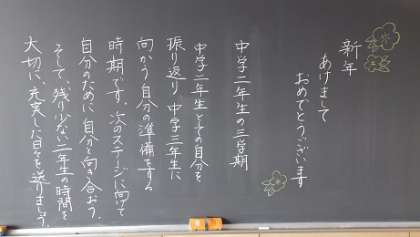 新年
あけまして
おめでとうございます
中学二年生の三学期
中学二年生としての自分を
振り返り、中学三年生に
向かう自分の準備をする
時期です。次のステージに向けて
自分のために、自分と向き合おう。
そして、残り少ない二年生の時間を
大切に、充実した日々を送りましょう。